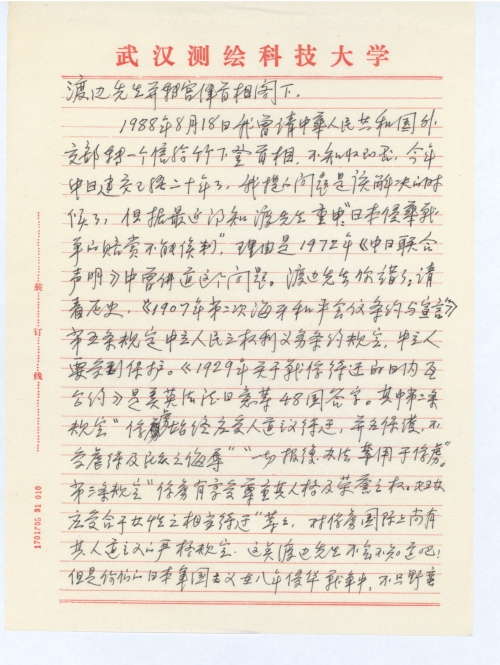 武汉测绘科技大学
渡边先生并转宫泽首相阁下.
1988年8月18日我曾请中華人民共和国外
交部转一个信给竹下登首相,不知收到否,今年
中日建交已经二十年了,我提的问题是该解决的时
候了,但据最近得知渡先生重申"日本侵华戰
争的赔赏不能谈判",理由是1972年《中日联合
声明》中曾讲道这个问题。渡边先生你错了,请
看历史,《1907年第二次海牙和平会议条约与宣言》
第五条规定中立人民之权利义务条约规定,中立人
要受到保护。《1929年关于戰俘待迂的日内瓦
公约》是美英法德日意等48国签字。其中第二条
规定"俘虏始终应受人道之待迂,并应保護,不
受虐待及民众之侮辱""一切报复办法禁用于俘虏"。
第三条规定"俘虏有享受尊重其人格及荣誉之权。妇女
应受合于女性之相当待迂"等等,对俘虏国际上尚有
其人道主义的严格规定,这莫渡边先生不会不知道吧!
但是你们的日本軍国主义在八年侵华戰争中,不只野蛮
装
订
线
1701705 91 010